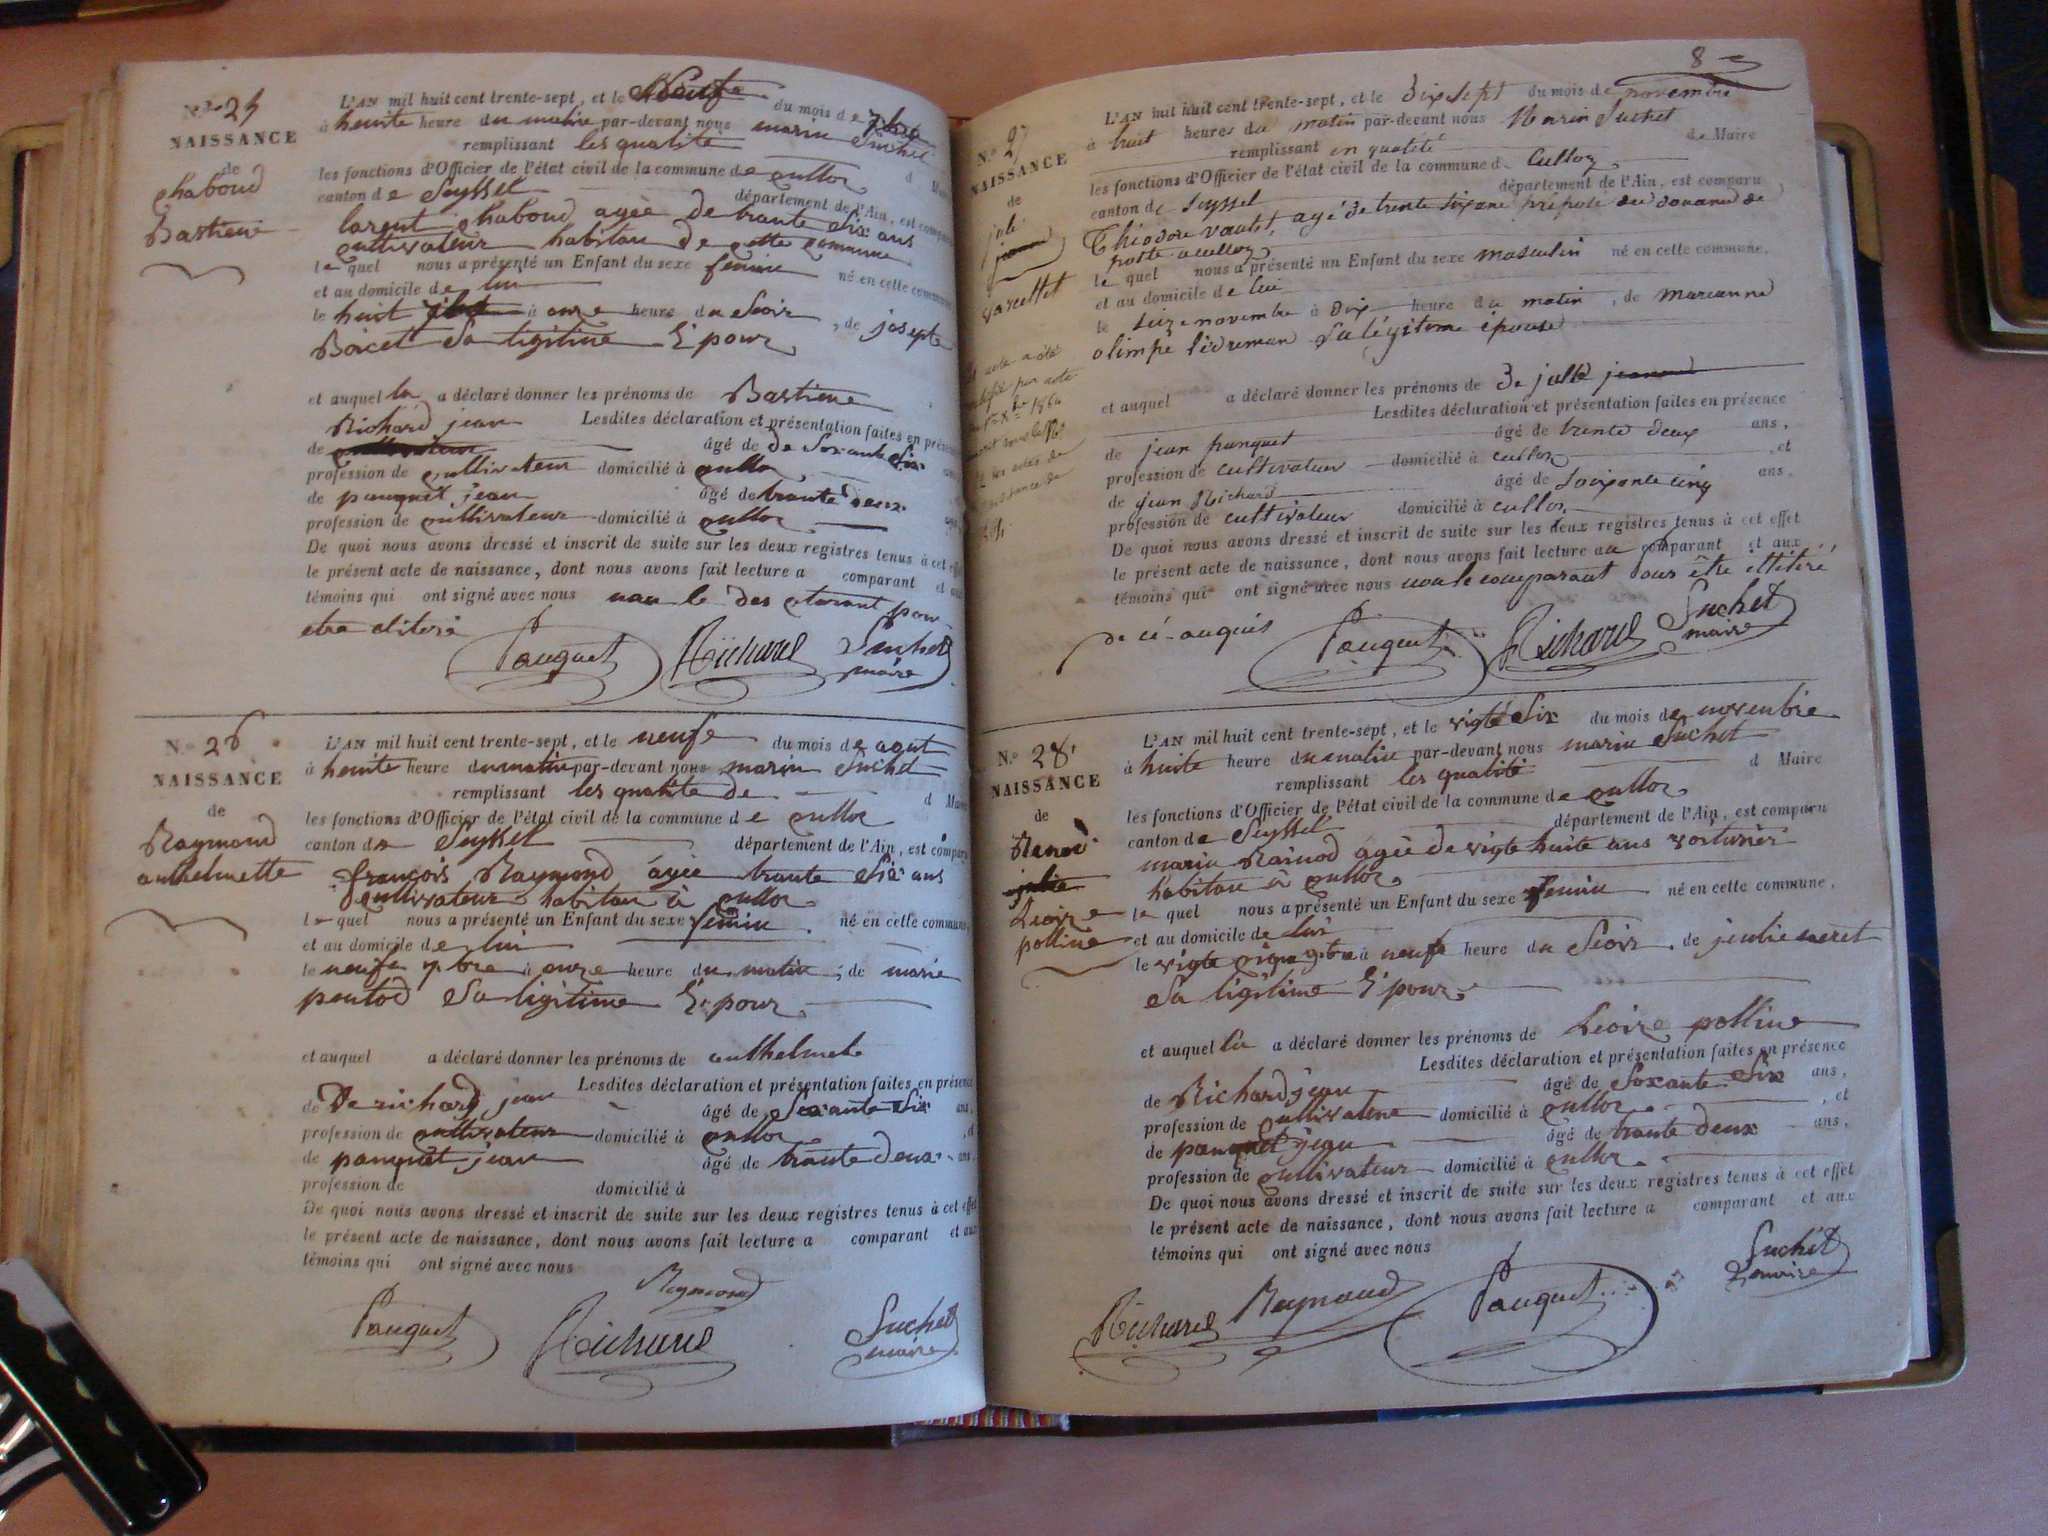 N.º 25
NAISSANCE
de
chaboud
Bastiene
L'AN mil huit cent trente-sept, et le Neufe du mois de 7bre
à heuite heure du matin par-devant nous marin Suchet
remplissant les qualité d Maire
les fonctions d'Officier de l'état civil de la commune de culloz
canton de Seyssel département de l'Ain, est comparu
larent chaboud agée de trante Six ans
cultivateur habitan de cette commune
le quel nous a présenté un Enfant du sexe feminin né en cette commune
et au domicile de lui
le huit à onze heure du Soir, de josepte
Boicet Sa ligitime Epouz
et auquel la a déclaré donner les prénoms de Bastiene
Richard jean Lesdites déclaration et présentation faites en présence
de cultivateur âgé de de Soxante Six ans
profession de cultivateur domicilié à culloz
de pauquet jean âgé de trante deux ans
profession de cultivateur domicilié à culloz
De quoi nous avons dressé et inscrit de suite sur les deux registres tenus à cet effet
le présent acte de naissance, dont nous avons fait lecture a comparant et aux
témoins qui ont signé avec nous nau le des clarant pour
etre eliteré
Pauquet Richard Suchet
maire
N.º 26
NAISSANCE
de
Raymond
anthelmette
L'AN mil huit cent trente-sept, et le neufe du mois de agut
à heuite heure du matin par-devant nous marin Suchet
remplissant les qualité de d Maire
les fonctions d'Officier de l'état civil de la commune de culloz
canton de Seyssel département de l'Ain, est comparu
françois Raymond agée trante Six ans
cultivateur habitan à culloz
le quel nous a présenté un Enfant du sexe feminin né en cette commune
et au domicile de lui
le neufe 7bre à onze heure du matin, de marie
pentod Sa ligitime Epouz
et auquel a déclaré donner les prénoms de anthelmete
Lesdites déclaration et présentation faites en présence
de De richard jean âgé de Soxante Six ans,
profession de cultivateur domicilié à culloz, et
de pauquet jean âgé de trante deux ans
profession de domicilié à
De quoi nous avons dressé et inscrit de suite sur les deux registres tenus à cet effet
le présent acte de naissance, dont nous avons fait lecture a comparant et aux
témoins qui ont signé avec nous
Raymond
Pauquet Richard Suchet
maire
8
N.º 27
NAISSANCE
de
julé
jeanod
varcellet
L'AN mil huit cent trente-sept, et le Dix sept du mois de novembre
à huit heures du matin par-devant nous Marin Suchet
remplissant en qualité de Maire
les fonctions d'Officier de l'état civil de la commune d Culloz
canton de Seyssel département de l'Ain, est comparu
Théodore vautet, agé de trente six ans préposé des douanes de
poste a culloz
le quel nous a présenté un Enfant du sexe masculin né en cette commune,
et au domicile de lui
le seize novembre à dix heure du matin, de marianne
olimpe Sa légitime épouse
et auquel a déclaré donner les prénoms de De julle jeanod
Lesdites déclaration et présentation faites en présence
de jean panquet âgé de trente deux ans,
profession de cultivateur domicilié à culloz, et
de jean Richard âgé de soixante cinq ans.
profession de cultivateur domicilié à culloz
De quoi nous avons dressé et inscrit de suite sur les deux registres tenus à cet effet
le présent acte de naissance, dont nous avons fait lecture au comparant et aux
témoins qui ont signé avec nous non le comparant Pour être ittitéré
de cé anquis
Pauquet Richard Suchet
maire
N.º 28
NAISSANCE
de
Renod
julie
Leoize
polline
L'AN mil huit cent trente-sept, et le vigte Six du mois de novenbre
à huite heure du matin par-devant nous marin Suchet
remplissant les qualité d Maire
les fonctions d'Officier de l'état civil de la commune de culloz
canton de Seyssel département de l'Ain, est comparu
marin Rainod agée de vigte huite ans voiturier
habitan à culloz
le quel nous a présenté un Enfant du sexe feminin né en cette commune,
et au domicile de lui
le vigte cinq 9bre à neufe heure du Soir, de jeulie meret
Sa ligitime Epouz
et auquel la a déclaré donner les prénoms de Leoize polline
Lesdites déclaration et présentation faites en présence
de Richard jean âgé de Soxante Six ans,
profession de cultivateur domicilié à culloz, et
de pauquet jean âgé de trante deux ans,
profession de cultivateur domicilié à culloz
De quoi nous avons dressé et inscrit de suite sur les deux registres tenus à cet effet
le présent acte de naissance, dont nous avons fait lecture a comparant et aux
témoins qui ont signé avec nous
Richard Reynaud Pauquet Suchet
maire